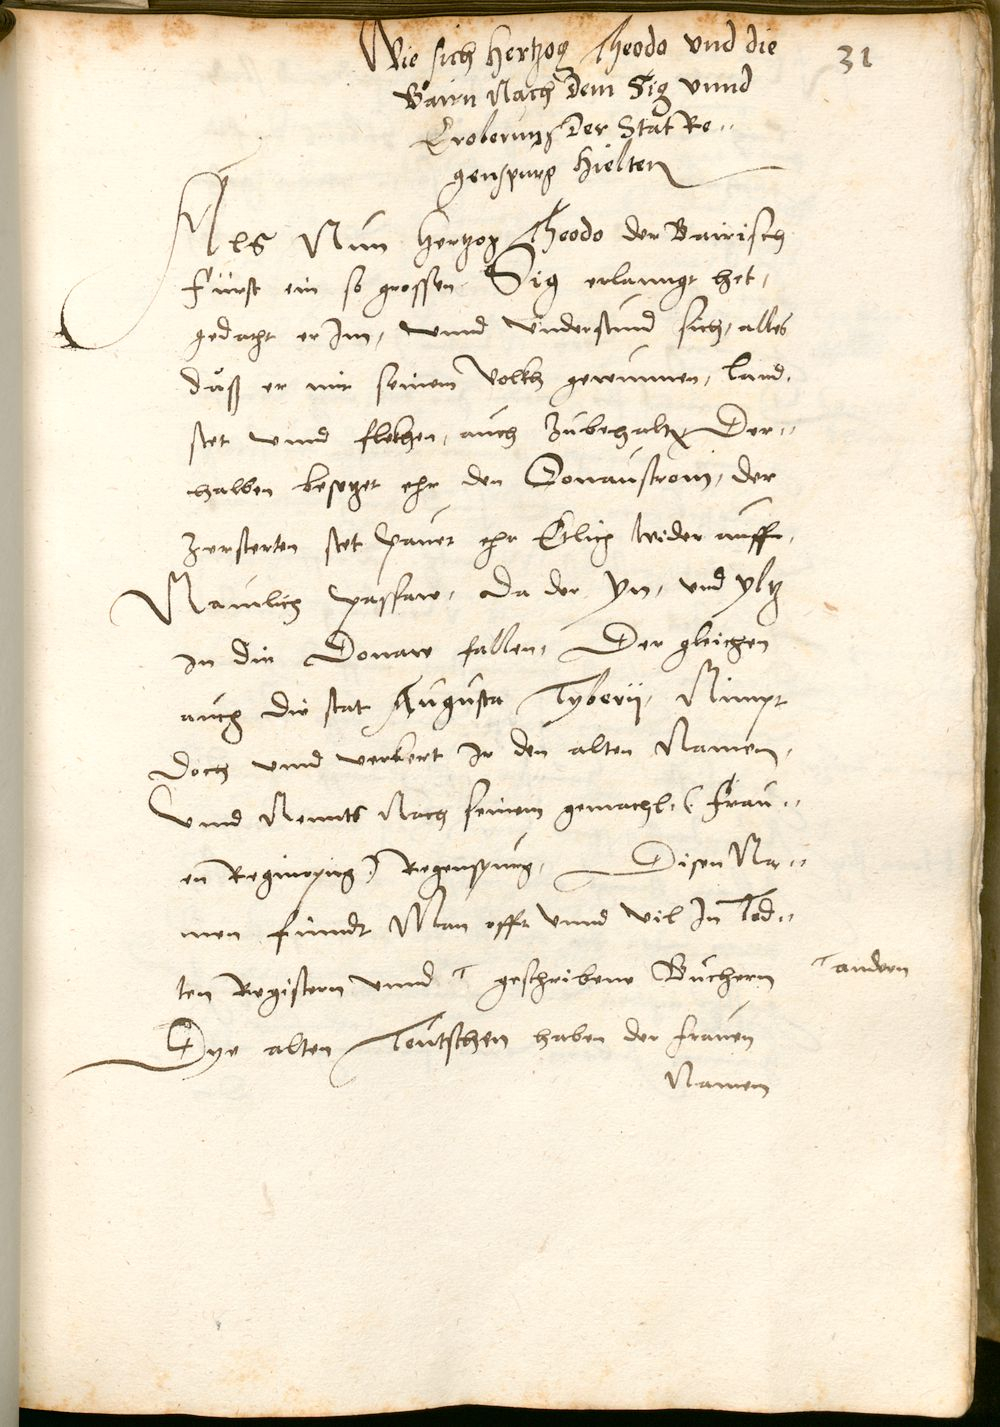 31
Wie sich Hertzog Theodo vnd die
Bairn Nach Dem Sig vnnd
Eroberung Der Stat Re-
genspurg hielten
Als Nun Hertzog Theodo der Bairisch
Fürst ein so grossen Sig erlanngt het,
gedacht er Im, vnnd vnderstund sich, alles
daß er mit seinem Volkh gewunnen, Land,
stet vnnd flekhen, auch zubehalten Der-
halben besetzet ehr den Donaustrom, der
zersterten stet pauet ehr Etlich wider auff,
Namlich passaw, da der yn, vnd yltz
in die Donaw fallen, Der gleichen
auch die stat Augusta Tyberij, Nimpt
doch vnnd verkert Ir den alten Namen,
vnnd Nennts Nach seinem gemachl, (Frau-
en Reginopurg) Regenspurg, Disen Na-
men findt Man offt vnnd vil In Tod-
ten Registern vnnd ⸆ geschribene Büchern ⸆ andern
Dye alten Teutschen haben der frauen
Namen